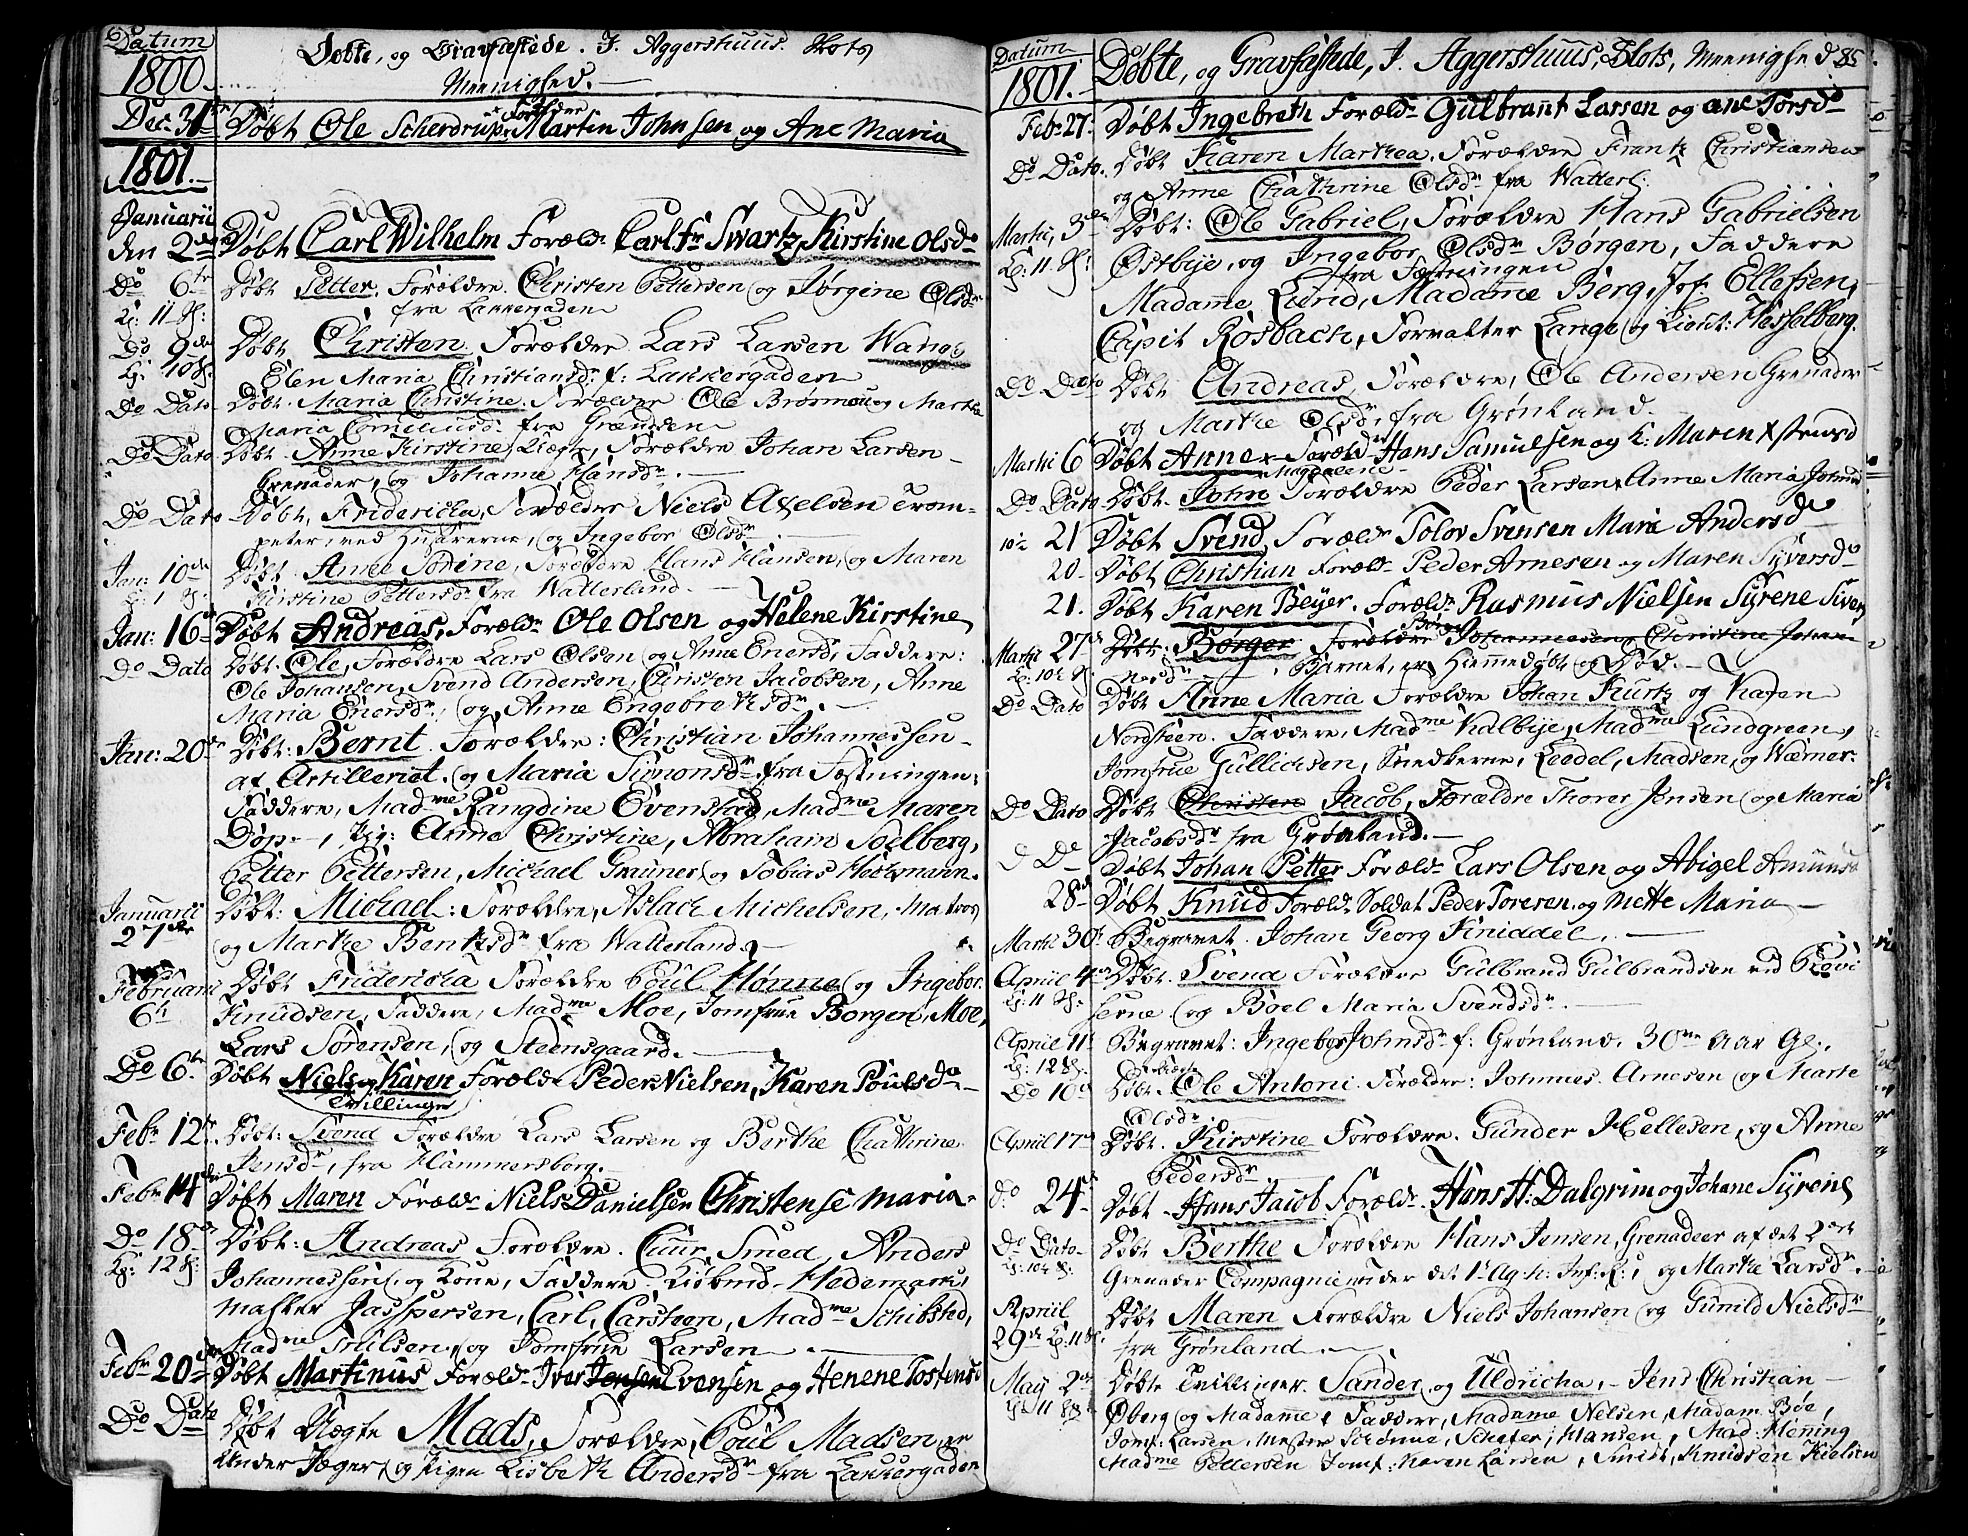 Datum
1800.
Döbte, og Gravfæstede. J. Aggershuus Slots
Meenighed.
Dec. 31te Döbt Ole Scherdrup, Forældre Martin Johnsen og Ane Maria
1801.
Januarii
den 2den Döbt Carl Wilhelm Foræld: Carl Fr Swartz, Kirstine Olsd.
Do 6te Döbt Petter. Forældre. Christen Pettersen og Jörgine Olsdr
Kl. 11 Sl: fra Lakkergaden
Do 9de Döbt Christen. Forældre Lars Larsen Wang og
Elen Maria Christiansdr f: Lakkergaden
Do Dato Döbt. Maria Christine. Forældre Ole og Marthe
Maria Corneliusdr fra Grændsen
Do Dato Döbt. Anne Kirstine, Uægte, Forældre Johan Larsen
Grenader, og Johanne Hansdr.
Do Dato Döbt, Fridericha, Forældre Niels Axelsen Trom-
peter, ved Husarerne, og Ingebor Olsdr
Jan: 10de Döbt. Anne Sorine, Forældre Hans Hansen, og Maren
Kirstine Pettersdr fra Watterland.
Jan: 16de Döbt Andreas, Foræld: Ole Olsen og Helene Kirstine
Do Dato Döbt. Ole, Forældre Lars Olsen og Anne Enersdr, Faddere:
Ole Johansen, Svend Andersen, Christen Jacobsen, Anne
Maria Enersdr, og Anne Engebrethsdr.
Jan: 20de Döbt: Bernt. Forældre: Christian Johannessen
af Artilleriet. og Maria Simonsdr fra Fæstningen.
Faddere, Madme Rangdine Evensted, Madme Maren
Döp, Anne Christine, Abraham Soelberg,
Petter Pettersen, Michael Grauner, og Tobias
Januarii Döbt: Michael: Forældre, Aslach Michelsen, Matros
27de og Marthe Bentsdr fra Watterland.
Februarii Döbt Fridericha Forældre Poul Hönne og Ingebor
6te Knudsen, Faddere, Madme Moe, Jomfrue Borgen, Moe,
Lars Sörensen, og Steensgaard.
Do 6te Döbt Niels og Karen Foræld: Peder Nielsen, Karen Poulsd.
Tvillinge
Febr 12te Döbt: Svend Forældre Lars Larsen og Berthe Chathrine
Jensdr, fra Hammersborg.
Febr 14de Döbt Maren Foræld: Niels Danielsen Christense Maria.
Do 18de Döbt: Andreas Forældre. Smed, Anders
Kl: 12 Sl: Johannessen, og Kone, Faddere. Kiöbmd. Hedemark,
Master Jasspersen, Carl Carsteen, Madme Schibsted,
Madme og Jomfrue Larsen
Febr 20de Döbt Martinus Foræld: Iver Jensen Evensen og Henene Tostensd
Do Dato Döbt Uægte Mads, Forældre, Poul Madsen, en
Under Jæger, og Pigen Lisbeth Andersdr fra Lakkergaden

Datum
1801.
Döbte, og Gravfæstede, J. Aggershuus, Slots, Meenighed 85
Febr 27. Döbt Ingebreth Foræld: Gulbrant Larsen og ane Torsd.
Do Dato. Döbt Karen Marthea. Forældre Frantz Christiansen
og Anne Chathrine Olsdr fra Watterl.
Martii, 3de Döbt: Ole Gabriel, Forældre Hans Gabrielsen
Kl: 11 Sl: Östbye, og Ingebor Olsdr Börgen, Faddere
fra Fæstningen
Madame Lund, Madame Berg, Jof. Ellefsen,
Capit Rosbach, Forvalter Lange og Lieut: Hesselberg.
Do Dato Döbt Andreas, Forældre, Ole Andersen Grenader
og Marthe Olsdr, fra Grönland.
Martii 6 Döbt Anne Foræld: Hans Samuelsen og K: Maren
Magdalene
Do Dato Döbt. John Forældre Peder Larsen, Anne Maria Johnsd
21 Döbt Svend, Foræld: Tolov Svensen Marie Andersd
20. Döbt Christian Foræld: Peder Arnesen og Maren Syversd
21. Döbt Karen Beyer. Foræld: Rasmus Nielsen Syrene Sivers
Martii 27de Döbt: Börger Forældre Börge Johannesen, Christine Johan
nesdr Barnet, er Hiemmedöbt og Död.
Do Dato Döbt Anne Maria Forældre Johan Kurtz og Karen
Nordsteen. Faddere, Madme Kalbye, Madme Lundgreen,
Jomfrue Gullichsen, Snedkerne, Leedel, Madsen, og Wærner.
Do Dato Döbt Christen Jacob, Forældre Thorer Jensen og Maria
Jacobsdr fra Grönland.
Do Döbt Johan Petter Foræld: Lars Olsen og Abigel Amunds
28de Döbt Knud Foræld: Soldat Peder Toresen og Mette Maria
Martii 30te Begravet. Johan Georg
Apriil 4de Döbt. Svend Forældre Gulbrand Gulbrandsen ved Provi
Kl: 11 Sl: serne og Boel Maria Svendsdr.
Apriil 11 Begravet: Ingebor Johnsdr f: Grönland. 30me Aar Gl.
Kl: 12 Sl:
Do 10de Döbt. Ole Antoni. Forældre: Johannes Arnesen og Marte
Olsdr
Apriil 17de Döbt. Kirstine Forældre. Gunder Hellesen, og Anne
Pedersdr
do 24de Döbt Hans Jacob Foræld: Hans H: Dalgrim og Johane Syrene
Do Dato Döbt Berthe Forældre Hans Jensen, Grenadeer af det 2det
Grenader Compagnie under det 1te Agh: Inf: R:, og Marthe Larsdr.
Apriil Döbt Maren Forældre Niels Johansen og Gunild Nielsdr
29de Kl: 11 Sl: fra Grönland
May 2de Döbte Tvillinger. Sander, og Uldricha, Jens Christian
Öberg og Madame, Faddere, Madame Nelsen, Madam Böe,
Jomf: Larsen, Mester Schönne, Hansen, Mad: Henning
Madme Pettersen Jomf: Maren Larsen, Smidt, Knudsen Nielsen